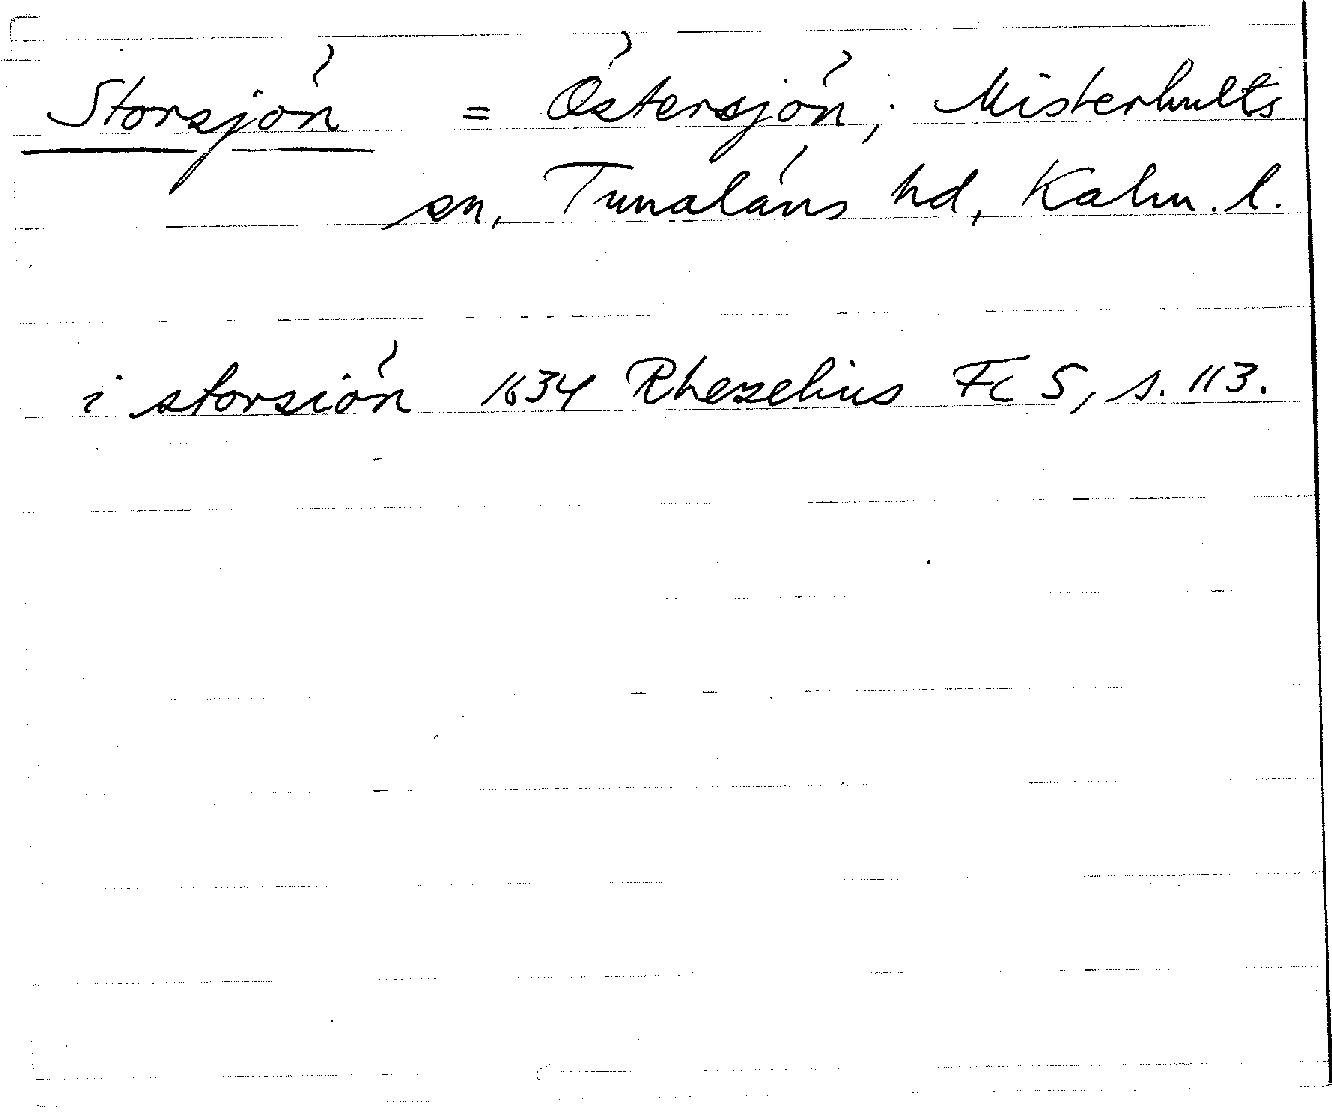 Storsjön = Östersjön; Misterhults
sn, Tunaläns hd, Kalm. l.
i storsiön 1634 Rhezelius Fc 5, s. 113.